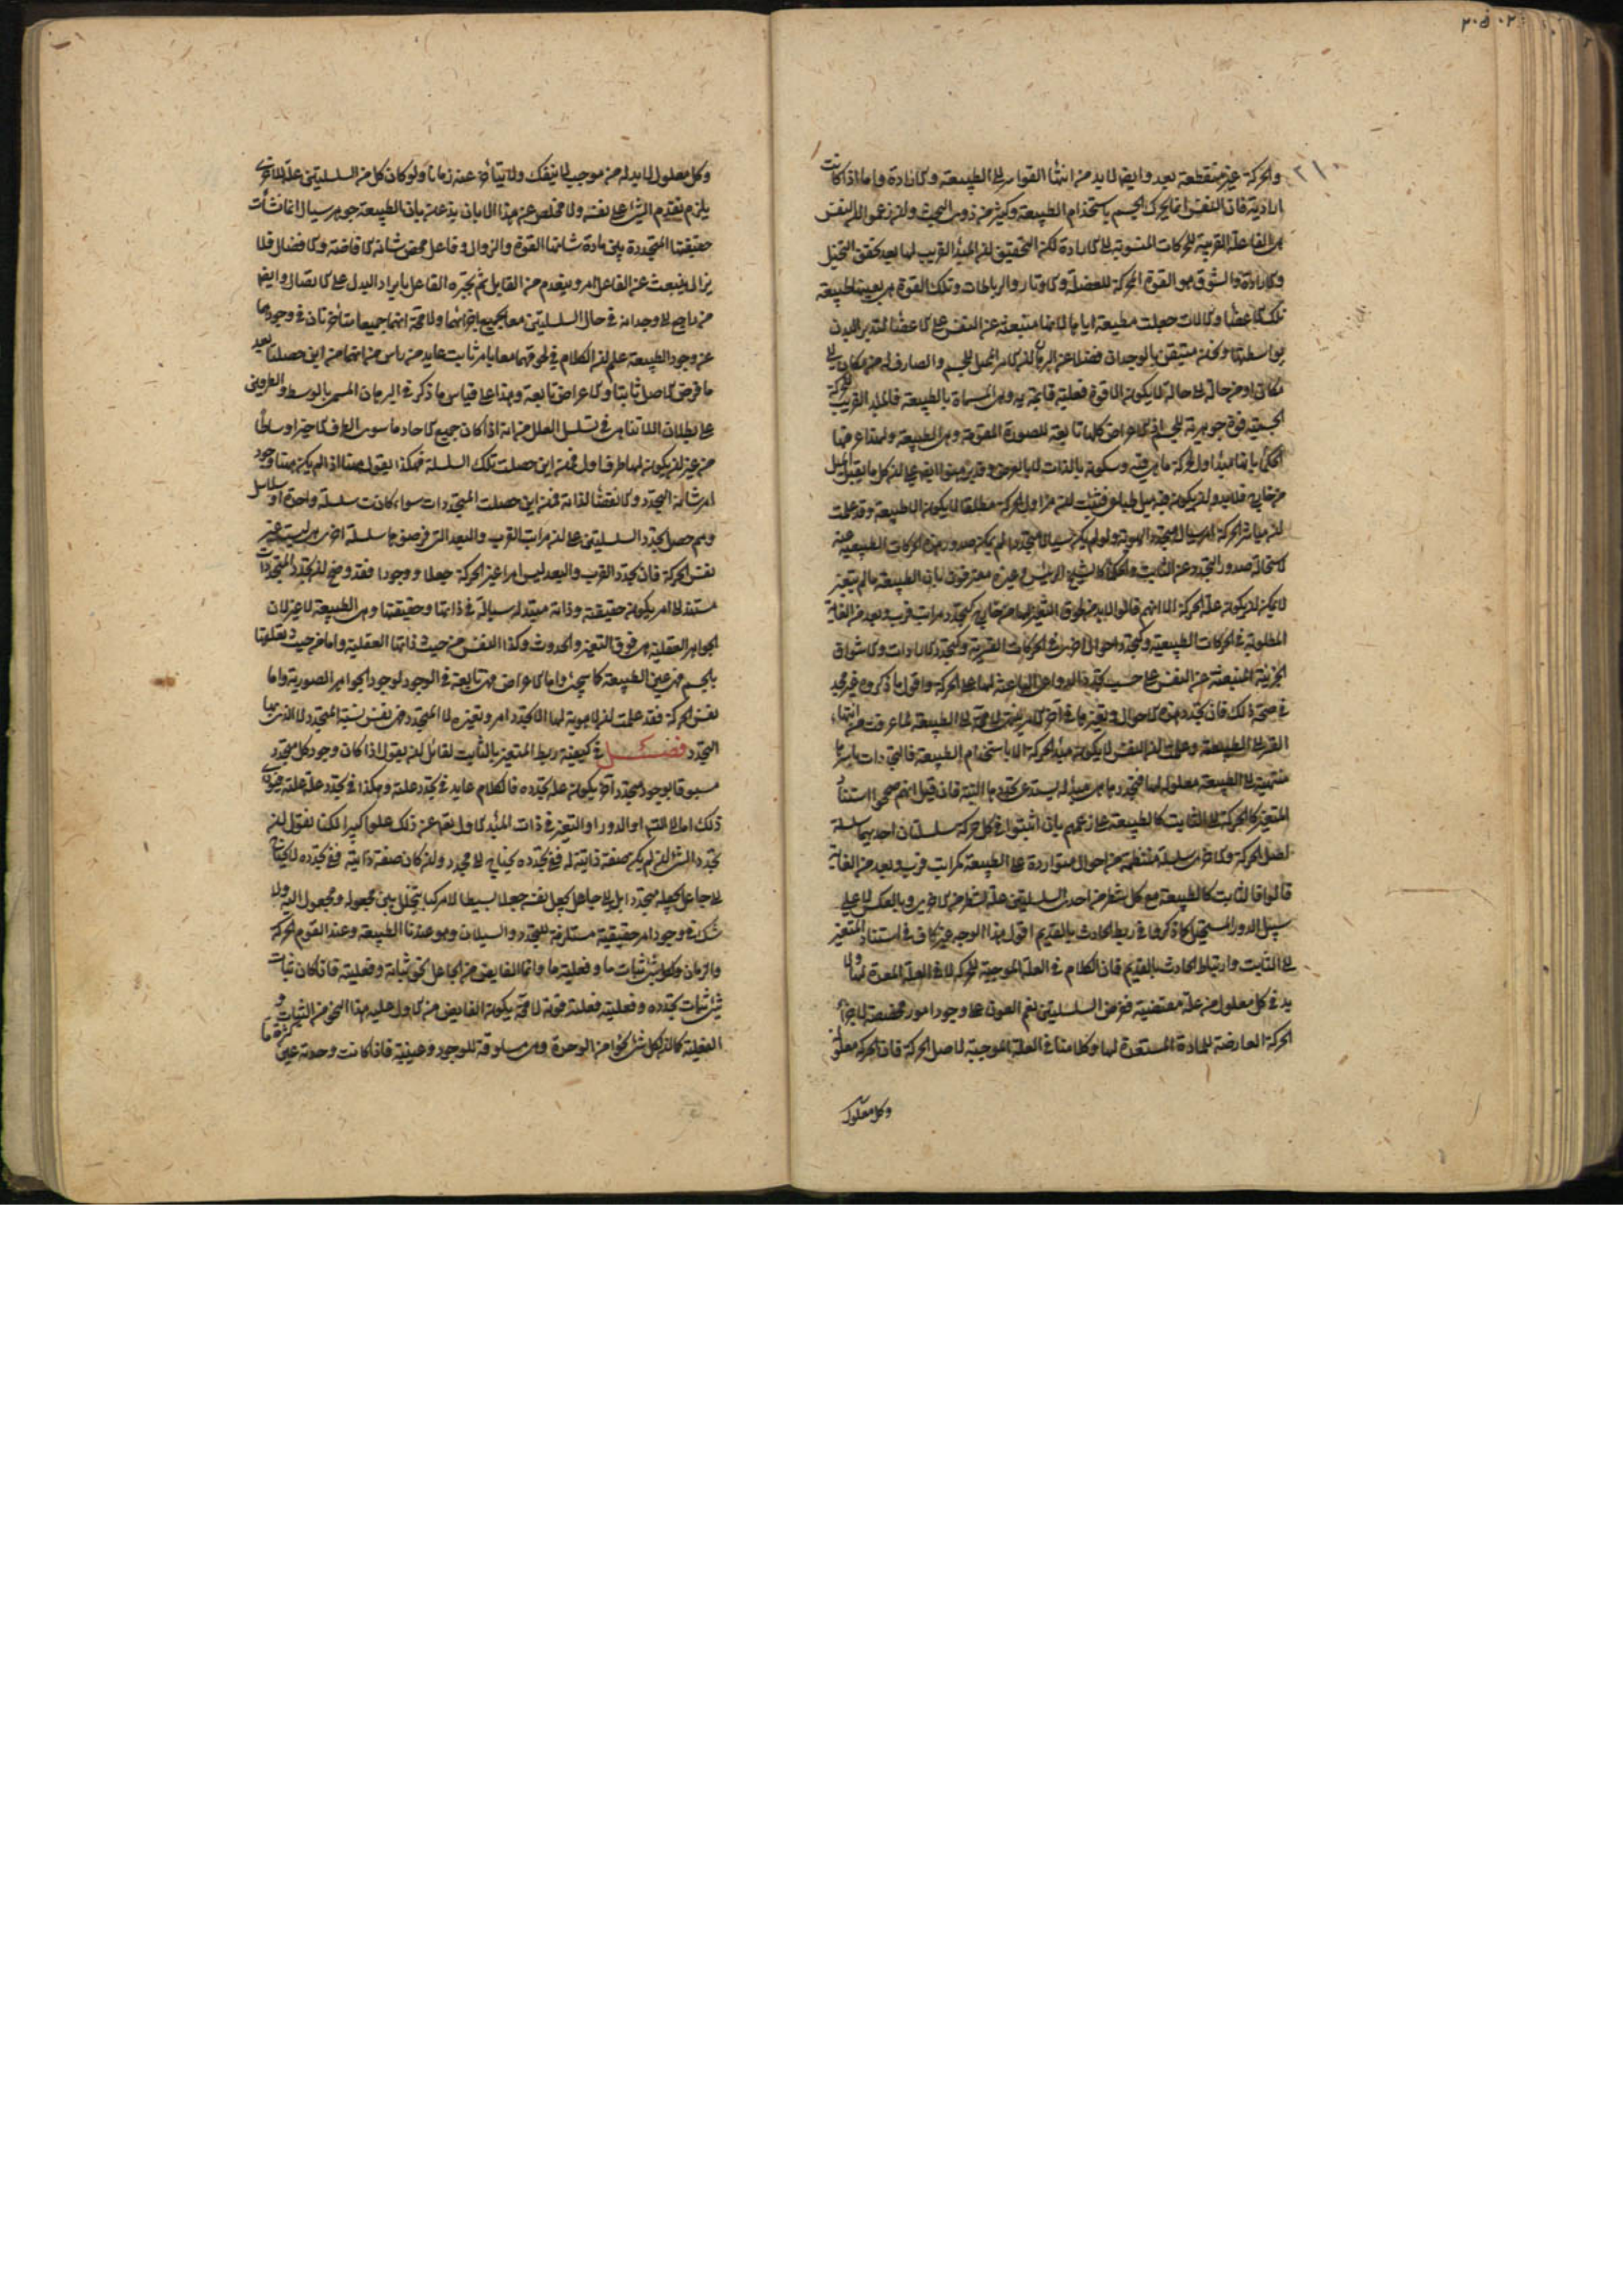 ٢٠٥٠٢
٢١٠
والحركة غير منقطعة بعد وايضا لا بد من انتهاء القواسر الى الطبيعة والارادة واما اذا كانت
ارادية فان النفس انما يحرك الجسم باستخدام الطبيعة وكثير من ذوى البحث وان زعموا ان النفس
هى الفاعلة القريبة للحركات المنسوبة الى الارادة لكن التحقيق ان المبدأ القريب لها بعد تحقق التخيل
والارادة والشوق هو القوة المحركة للعضلة والاوتار والرباطات وتلك القوة هى بعينها طبيعة
تلك الاعضاء والالات جعلت مطيعة اياها لانها منبعثة عن النفس على الاعضاء لتدبير البدن
بواسطتها ونحن متيقن بالوجدان فضلا عن البرهان ان الامر المميل للجسم والصارف له من مكان الى
مكان او من حالة الى حالة لا يكون الا قوة فعلية قائمة به وهى المسماة بالطبيعة فالمبدأ القريب للحركة
الجسمية قوة جوهرية للجسم اذ الاعراض كلها تابعة للصورة المقومة وهى الطبيعة ولهذا عرفها
الحكماء بانها مبدأ اول لحركة ما هى فيه وسكونه بالذات لا بالعرض وقد برهنوا ايضا على ان كل ما يقبل الميل
من خارج فلا بد وان يكون فيه ميل طباعى فثبت ان مزاول الحركة مطلقا لا يكون الا طبيعة وقد علمت
ان مباشر الحركة امر سيال متجدد الهوية ولو لم يكن سيالا متجددا لم يكن صدور هذه الحركات الطبيعية عنه
لاستحالة صدور المتجدد عن الثابت والحكماء كالشيخ الرئيس وغيره معترفون بان الطبيعة ما لم يتغير
لا يمكن ان يكون علة الحركة الا انهم قالوا لا بد من لحوق التغير لها من خارج كتجدد مراتب قرب وبعد من الغاية
المطلوبة فى الحركات الطبيعية وكتجدد احوال اخرى فى الحركات القسرية وكتجدد الارادات والاشواق
الجزئية المنبعثة عن النفس على حسب تجدد الدواعى الباعثة لها على الحركة واقول ما ذكروه غير مجد
فى صحة ذلك فان تجدد هذه الاحوال وتغيرها فى اخر الامر ينتهى لا محالة الى الطبيعة لما عرفت من انتهاء
القسر الى الطبيعة وعلمت ان النفس لا يكون مبدأ الحركة الا باستخدام الطبيعة فالتجددات باسرها
منتهية الى الطبيعة معلولة لها فتجددها من مبدئه يستدعى تجددها البتة فان قيل انهم صححوا استناد
المتغير كالحركة الى الثابت كالطبيعة على زعمهم بان اثبتوا فى كل حركة سلسلتان احديهما سلسلة
اصل الحركة والاخرى سلسلة منتظمة من احوال متواردة على الطبيعة كمراتب قرب وبعد من الغاية
قالوا فالثابت كالطبيعة مع كل شطر من احدى السلسلتين علة لشطر من الاخرى وبالعكس لا على
سبيل الدور المستحيل كما ذكروا فى ربط الحادث بالقديم اقول هذا الوجه غير كاف فى استناد المتغير
الى الثابت وارتباط الحادث بالقديم فان الكلام فى العلة الموجبة للحركة لا فى العلة المعدة لها ولا
بد فى كل معلول من علة مقتضية ففرض السلسلتين نعم العون على وجود امور مخصصة لاجزاء
الحركة العارضة للمادة المستعدة لها وكلامنا فى العلة الموجبة لاصل الحركة فان الحركة معلولة
وكل معلول
وكل معلول لا بد له من موجب لا ينفك ولا يتأخر عنه زمانا ولو كان كل من السلسلتين علة للاخرى
يلزم تقدم الشئ على نفسه ولا مخلص عن هذا الا بان يذعن بان الطبيعة جوهر سيال انما نشأت
حقيقتها المتجددة بين مادة شانها القوة والزوال وفاعل محض شانه الافاضة والافضال فلا
يزال ينبعث عن الفاعل امر وينعدم من القابل ثم يجبره الفاعل بايراد البدل على الاتصال وايضا
من راجع الى وجدانه فى حال السلسلتين معا بجميع اجزائهما ولا محة انهما جميعا متأخرتان فى وجودهما
عن وجود الطبيعة علم ان الكلام فى لحوقهما معا بامر ثابت عايد من راس من انهما من اين حصلتا بعد
ما فرض الاصل ثابتا والاعراض تابعة وهذا على قياس ما ذكر فى البرهان المسمى بالوسط والطرفين
على بطلان اللاتناهى فى تسلسل العلل من انه اذا كان جميع الاحاد ما سوى الطرف الاخير اوساطا
من غير ان يكون لها طرف اول فمن اين حصلت تلك السلسلة فهكذا يقول ههنا اذ لم يكن ههنا وجود
امر شانه التجدد والانقضاء لذاته فمن اين حصلت المتجددات سواء كانت سلسلة واحدة او سلاسل
وبم حصل تجدد السلسلتين على ان مراتب القرب والبعد التى فرضوها سلسلة اخرى هى ليست غير
نفس الحركة فان تجدد القرب والبعد ليس امرا غير الحركة جعلا ووجودا فقد وضح ان تجدد المتجددات
مستند الى امر يكون حقيقته وذاته متبدلة سيالة فى ذاتها وحقيقتها وهى الطبيعة لا غير لان
الجواهر العقلية هى فوق التغير والحدوث وكذا النفس من حيث ذاتها العقلية واما من حيث تعلقها
بالجسم فهى عين الطبيعة كما سيجئ واما الاعراض فهى تابعة فى الوجود لوجود الجواهر الصورية واما
نفس الحركة فقد علمت ان لا هوية لها الا تجدد امر وتغيره لا المتجدد فهى نفس نسبة المتجدد لا الذى بها
التجدد فصل فى كيفية ربط المتغير بالثابت لقائل ان يقول اذا كان وجود كل متجدد
مسبوقا بوجود متجدد آخر يكون علة تجدده فالكلام عايد فى تجدد علته وهكذا فى تجدد علة علته فيؤدى
ذلك اما الى التسلسل او الدور او التغير فى ذات المبدأ الاول تعالى عن ذلك علوا كبيرا لكنا نقول ان
تجدد الشئ ان لم يكن صفة ذاتية له ففى تجدده يحتاج الى مجدد وان كان صفة ذاتية ففى تجدده لا يحتاج
الى جاعل يجعله متجددا بل الى جاعل يجعل نفسه جعلا بسيطا لا مركبا يتخلل بين مجعول ومجعول اليه ولا
شك فى وجود امر حقيقته مستلزمة للتجدد والسيلان وهو عندنا الطبيعة وعند القوم الحركة
والزمان ولكل شئ ثبات ما وفعلية ما وانما الفايض من الجاعل نحو ثباته وفعليته فاذا كان ثبات
شئ ثبات تجدده وفعليته فعلية قوته لا محة يكون الفايض من الاول عليه هذا النحو من الثبات و
الفعلية كما ان لكل شئ نحوا من الوحدة وهى مساوقة للوجود وعينيته فاذا كانت وحدته عين كثرة ما